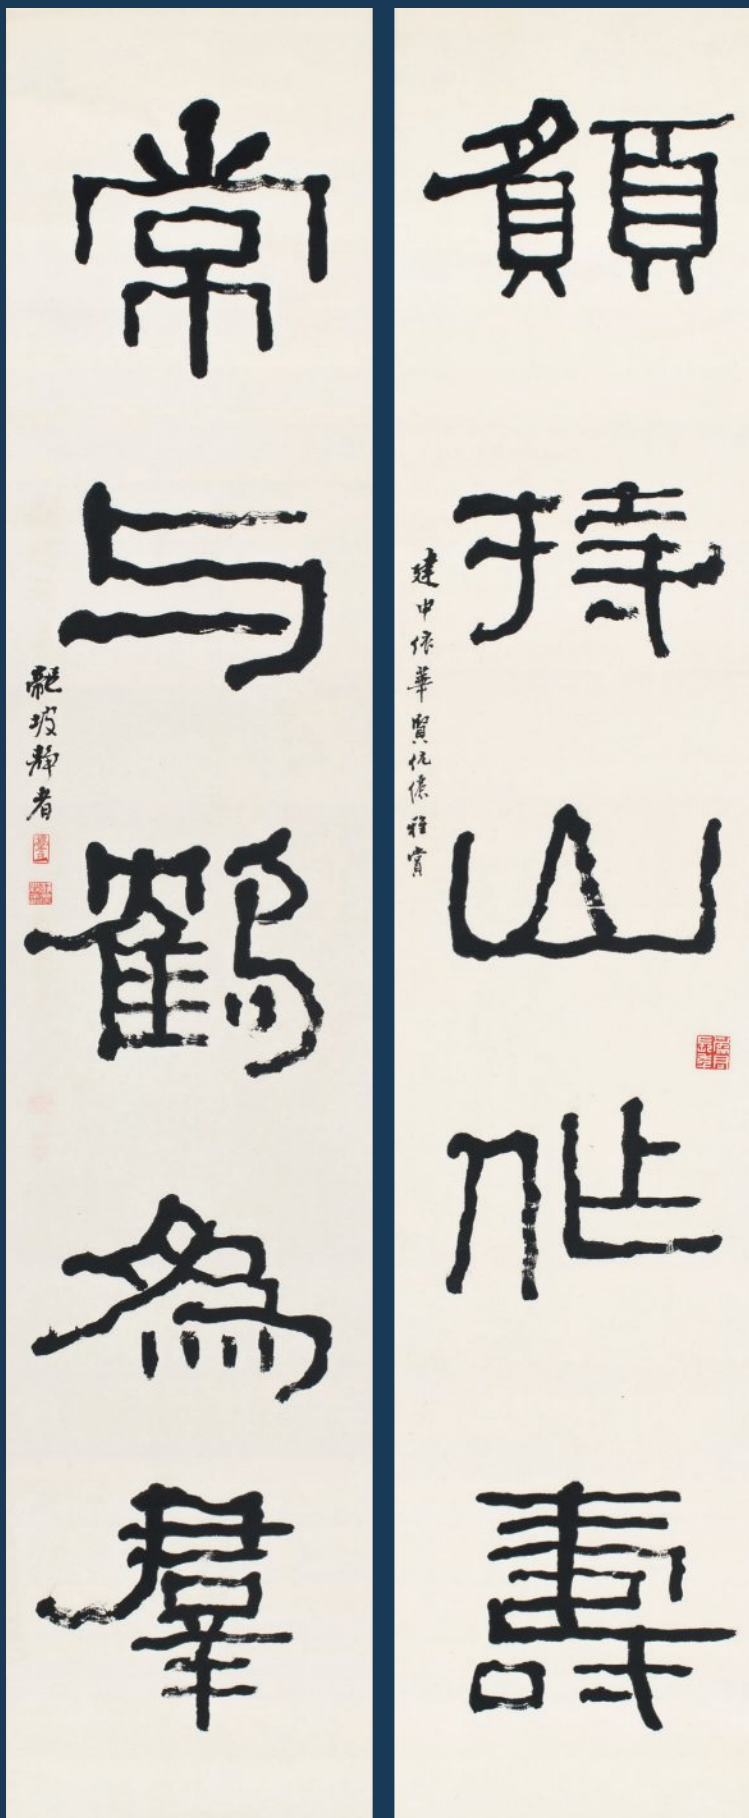 願持山作壽
建中依華賢伉儷雅賞
常与鶴為羣
龍坡靜者